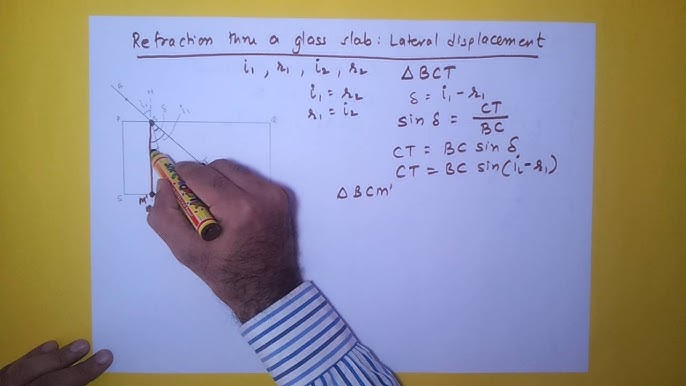 Refraction thru a glass slab: Lateral displacement
i₁, r₁, i₂, r₂
i₁ = r₂
r₁ = i₂
△BCT
δ = i₁ - r₁
sin δ = CT/BC
CT = BC sin δ
CT = BC sin(i₁-r₁)
△BCM'
P
Q
S
M'
δ
i₁